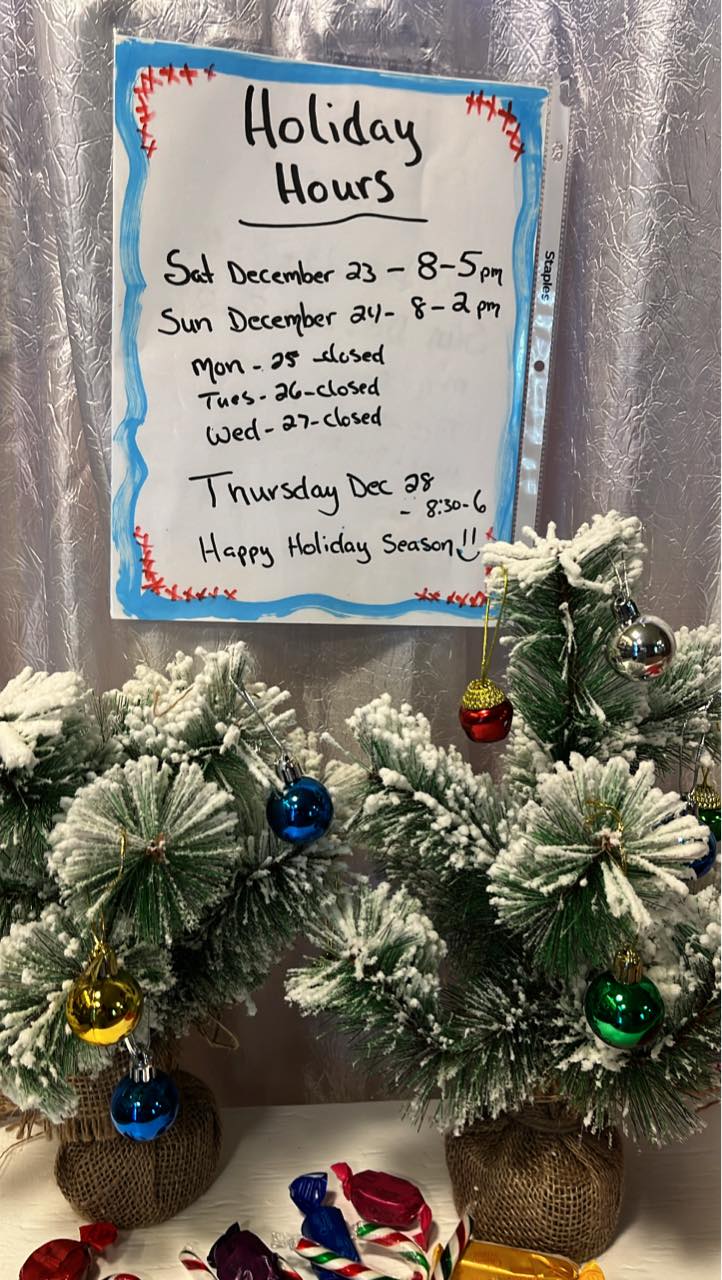 Holiday
Hours
Sat December 23 - 8-5pm
Sun December 24- 8-2 pm
Mon - 25 closed
Tues - 26-closed
Wed - 27-closed
Thursday Dec 28
- 8:30-6
Happy Holiday Season!!
Staples